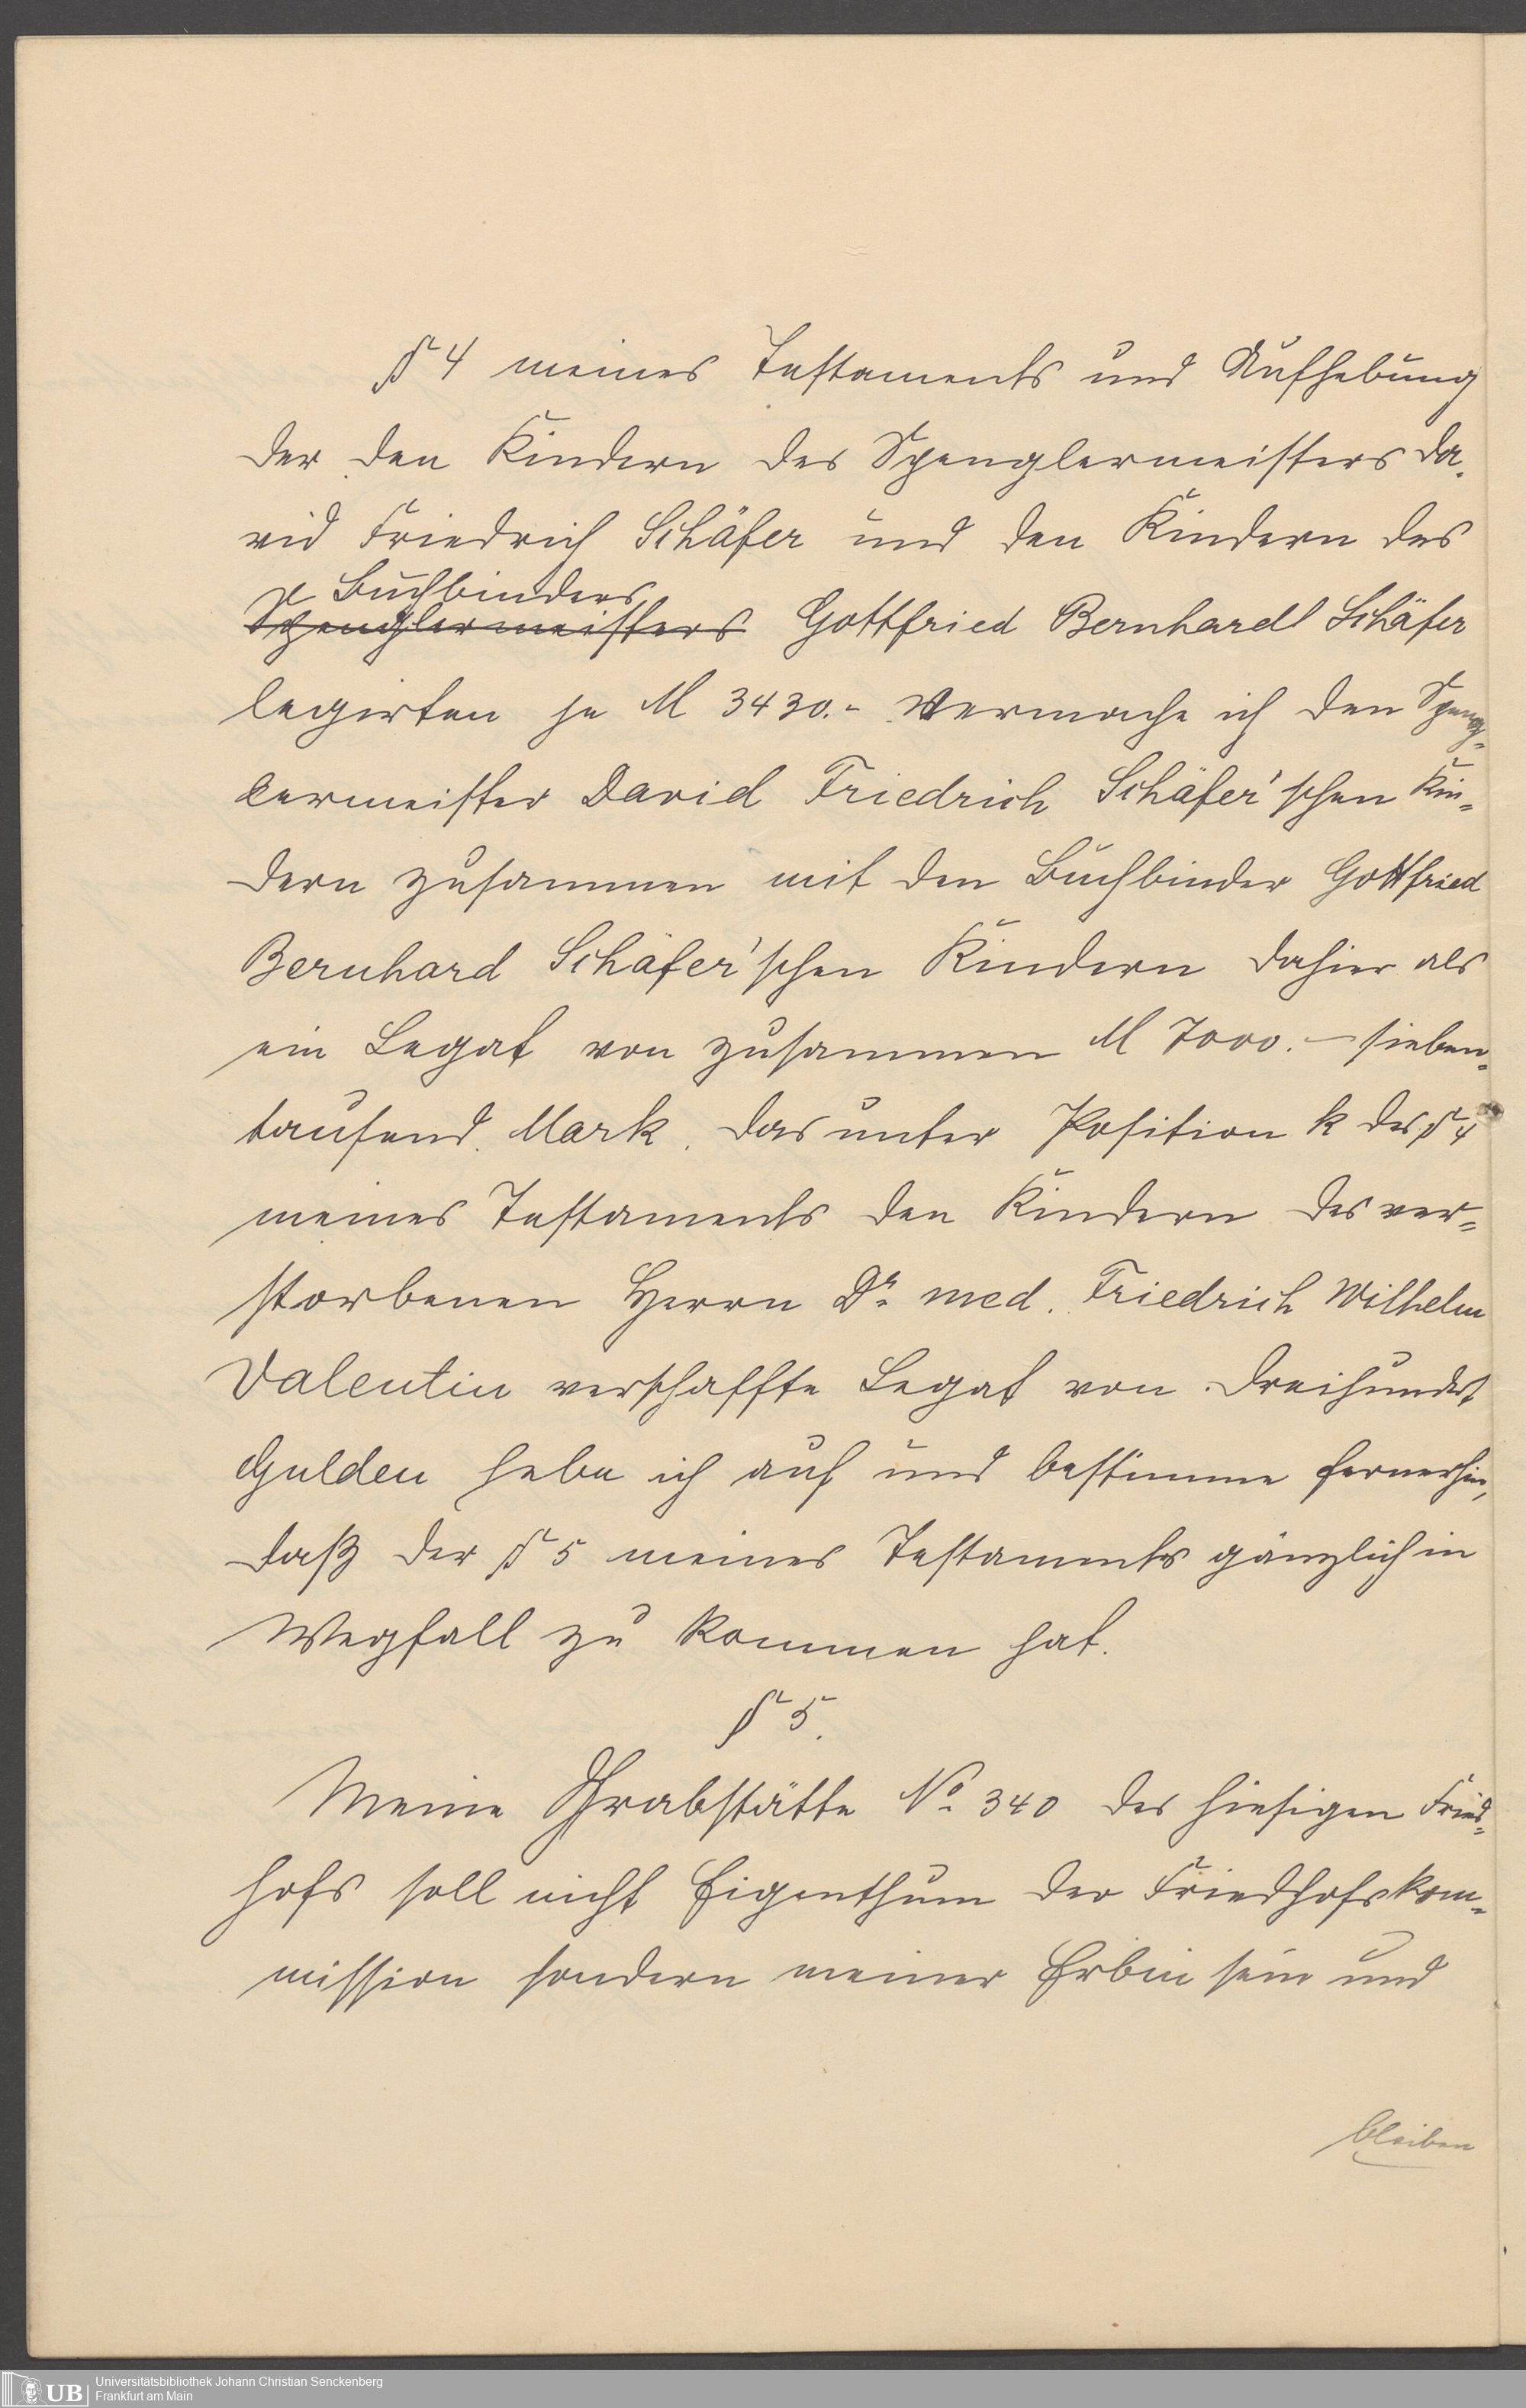 § 4 meines Testaments und Aufhebung
der den Kindern des Spenglermeisters Da-
vid Friedrich Schäfer und den Kindern des
Buchbinders
Spenglermeisters Gottfried Bernhard Schäfer
legirten je M 3430.- vermache ich den Speng-
lermeister David Friedrich Schäfer'schen Kin-
dern zusammen mit den Buchbinder Gottfried
Bernhard Schäfer'schen Kindern dahier als
ein Legat von zusammen M 7000.- sieben-
tausend Mark. Das unter Position k des § 4
meines Testaments den Kindern des ver-
storbenen Herrn Dr. med. Friedrich Wilhelm
Valentin verschaffte Legat von dreihundert
Gulden hebe ich auf und bestimme fernerhin,
daß der § 5 meines Testaments gänzlich in
Wegfall zu kommen hat.
§ 5.
Meine Grabstätte No. 340 des hiesigen Fried-
hofs soll nicht Eigenthum der Friedhofskom-
mission sondern meiner Erbin sein und
bleiben
UB Universitätsbibliothek Johann Christian Senckenberg
Frankfurt am Main